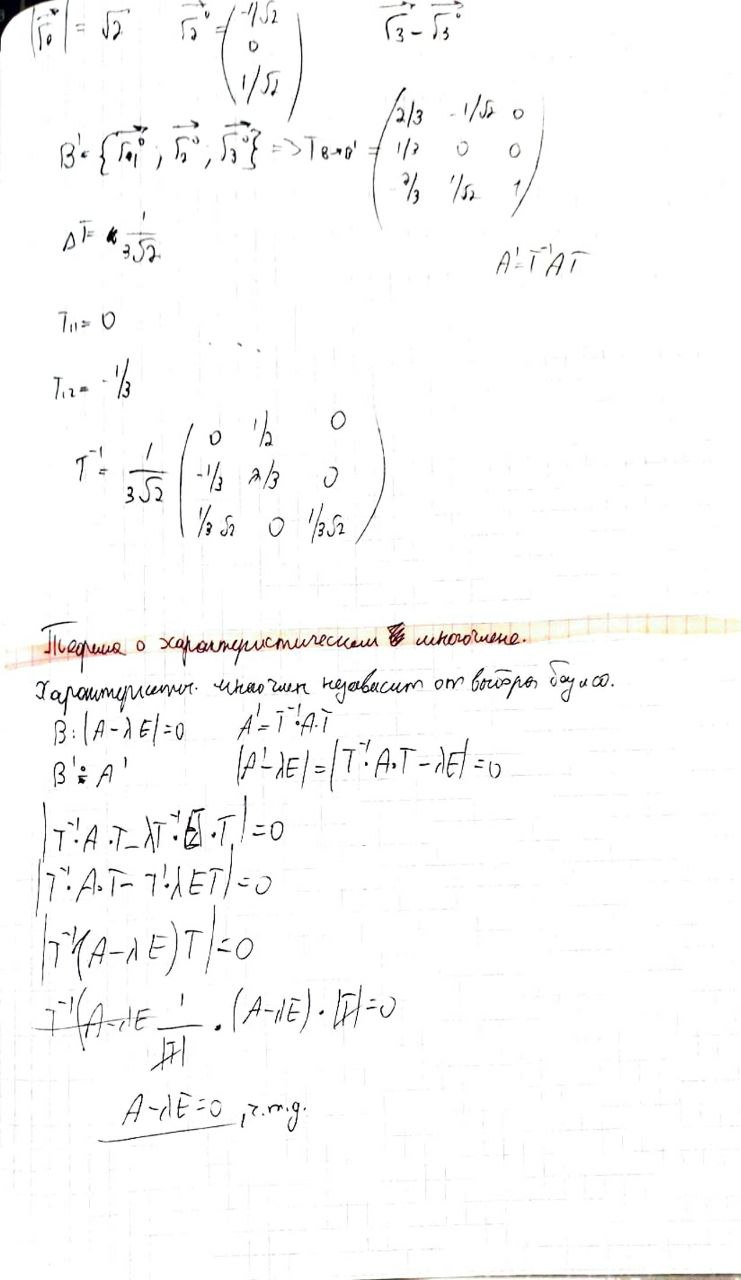 |r₀| = √2    r₂⁰ = (-1/√2  0  1/√2)    r₃ = r₃⁰
B' = {r₁⁰, r₂⁰, r₃⁰} => T B→B' = (2/3  -1/√2  0
1/3  0  0
-2/3  1/√2  1)
Δ T = 1/3√2
A' = T⁻¹AT
T₁₁ = 0
T₁₂ = -1/3
T⁻¹ = 1/3√2 (0  1/2  0
-1/3  2/3  0
1/3√2  0  1/3√2)
Теорема о характеристическом многочлене.
Характеристич. многочлен независит от выбора базиса.
B: |A-λE|=0    A' = T⁻¹·A·T
B': A'    |A'-λE| = |T⁻¹·A·T - λE| = 0
|T⁻¹·A·T - λT⁻¹·E·T| = 0
|T⁻¹·A·T - T⁻¹λET| = 0
|T⁻¹(A-λE)T| = 0
T⁻¹(A-λE 1/|T| · (A-λE) · |T| = 0
A-λE=0, ч.т.д.